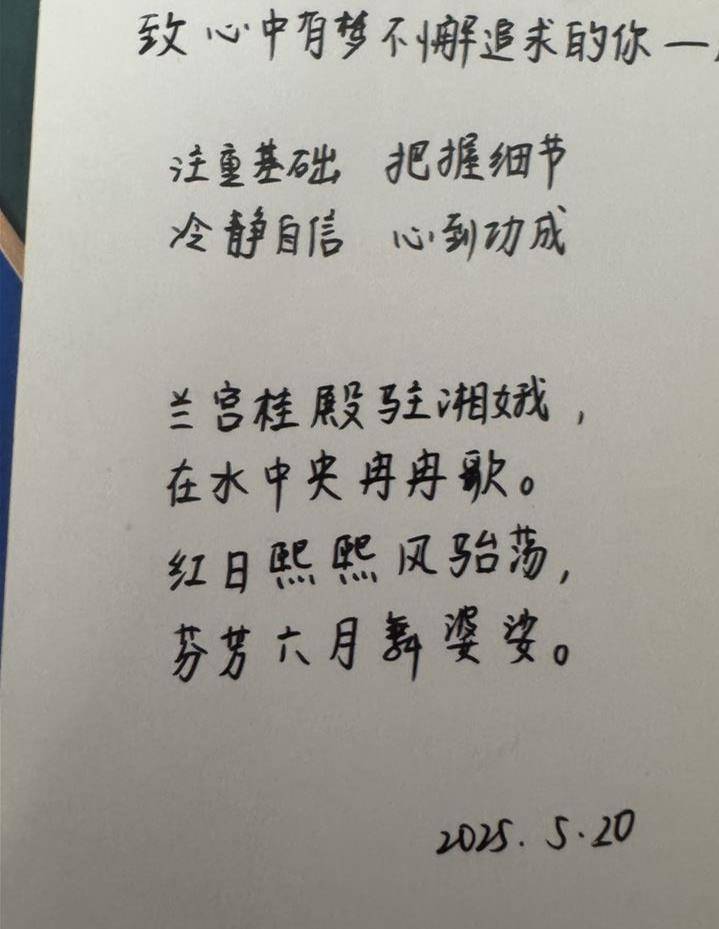 致心中有梦不懈追求的你一
注重基础 把握细节
冷静自信 心到功成
兰宫桂殿驻湘娥，
在水中央冉冉歌。
红日熙熙风骀荡，
芬芳六月舞婆娑。
2025.5.20